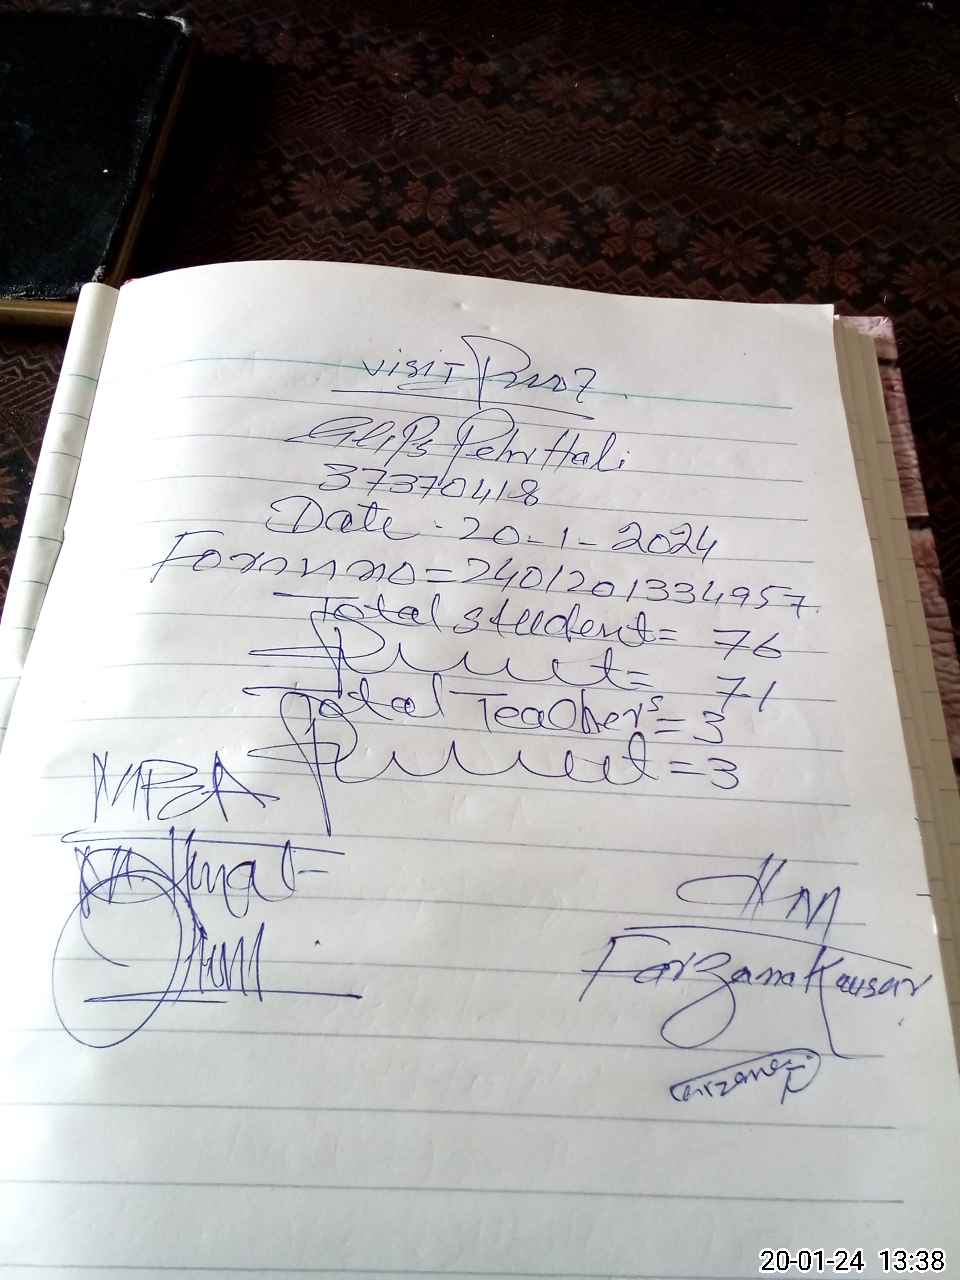 visit Proof
GGPS Pehr Hali
37370418
Date . 20-1-2024
Form no = 2401201334957
Total student = 76
Present = 71
Total Teachers = 3
Present = 3
MEA
HM
Farzana Kausar
Farzana
20-01-24 13:38